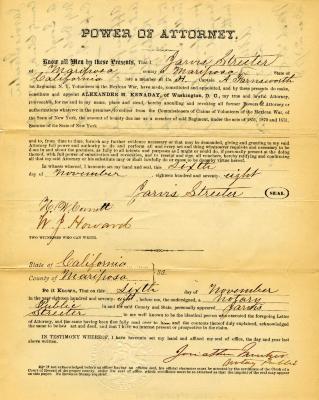 POWER OF ATTORNEY.
Know all Men by these Presents, That I Jarvis Streeter
of Mariposa county of Mariposa State of
California late a member of Co. Captain A. Farnsworth
Regiment N. Y. Volunteers in the Mexican War, have made, constituted and appointed, and by these presents do make,
constitute and appoint ALEXANDER M. KENADAY, of Washington, D. C., my true and lawful Attorney,
irrevocable, for me and in my name, place and stead, hereby annulling and revoking all former Powers of Attorney or
authorizations whatever in the premises, to receive from the Commissioners of Claims of Volunteers of the Mexican War, of the
State of New York, the amount of bounty due me as a member of said Regiment, under the acts of 1870 and 1871,
of the State of New York
and to, from time to time, furnish any further evidence necessary or that may be demanded, giving and granting to my said
Attorney full power and authority to do and perform all and every act and thing whatsoever requisite and necessary to be
done in and about the premises, as fully to all intents and purposes as I might or could do, if personally present at the doing
thereof, with full power of substitution and revocation, and to receipt and sign all vouchers, hereby ratifying and confirming
all that my said Attorney or his substitute may or shall lawfully do or cause to be done by virtue hereof.
In witness whereof, I hereunto set my hand and seal, this Sixth
day of November eighteen hundred seventy-eight
Jarvis Streeter SEAL
W. J. Howard
TWO WITNESSES WHO CAN WRITE.
State of California
County of Mariposa ss.
Be it Known, That on this Sixth day of November
in the year eighteen hundred and seventy-eight, before me, the undersigned, a Notary
Public in and for said County and State, personally appeared Jarvis
Streeter to me well known to be the identical person who executed the foregoing Letter
of Attorney, and the same having been first fully read over to him and the contents thereof duly explained, acknowledged
the same to be his act and deed, and that I have no interest present or prospective in the claim.
IN TESTIMONY WHEREOF, I have hereunto set my hand and affixed my seal of office, the day and year last
above written.
Notary Public